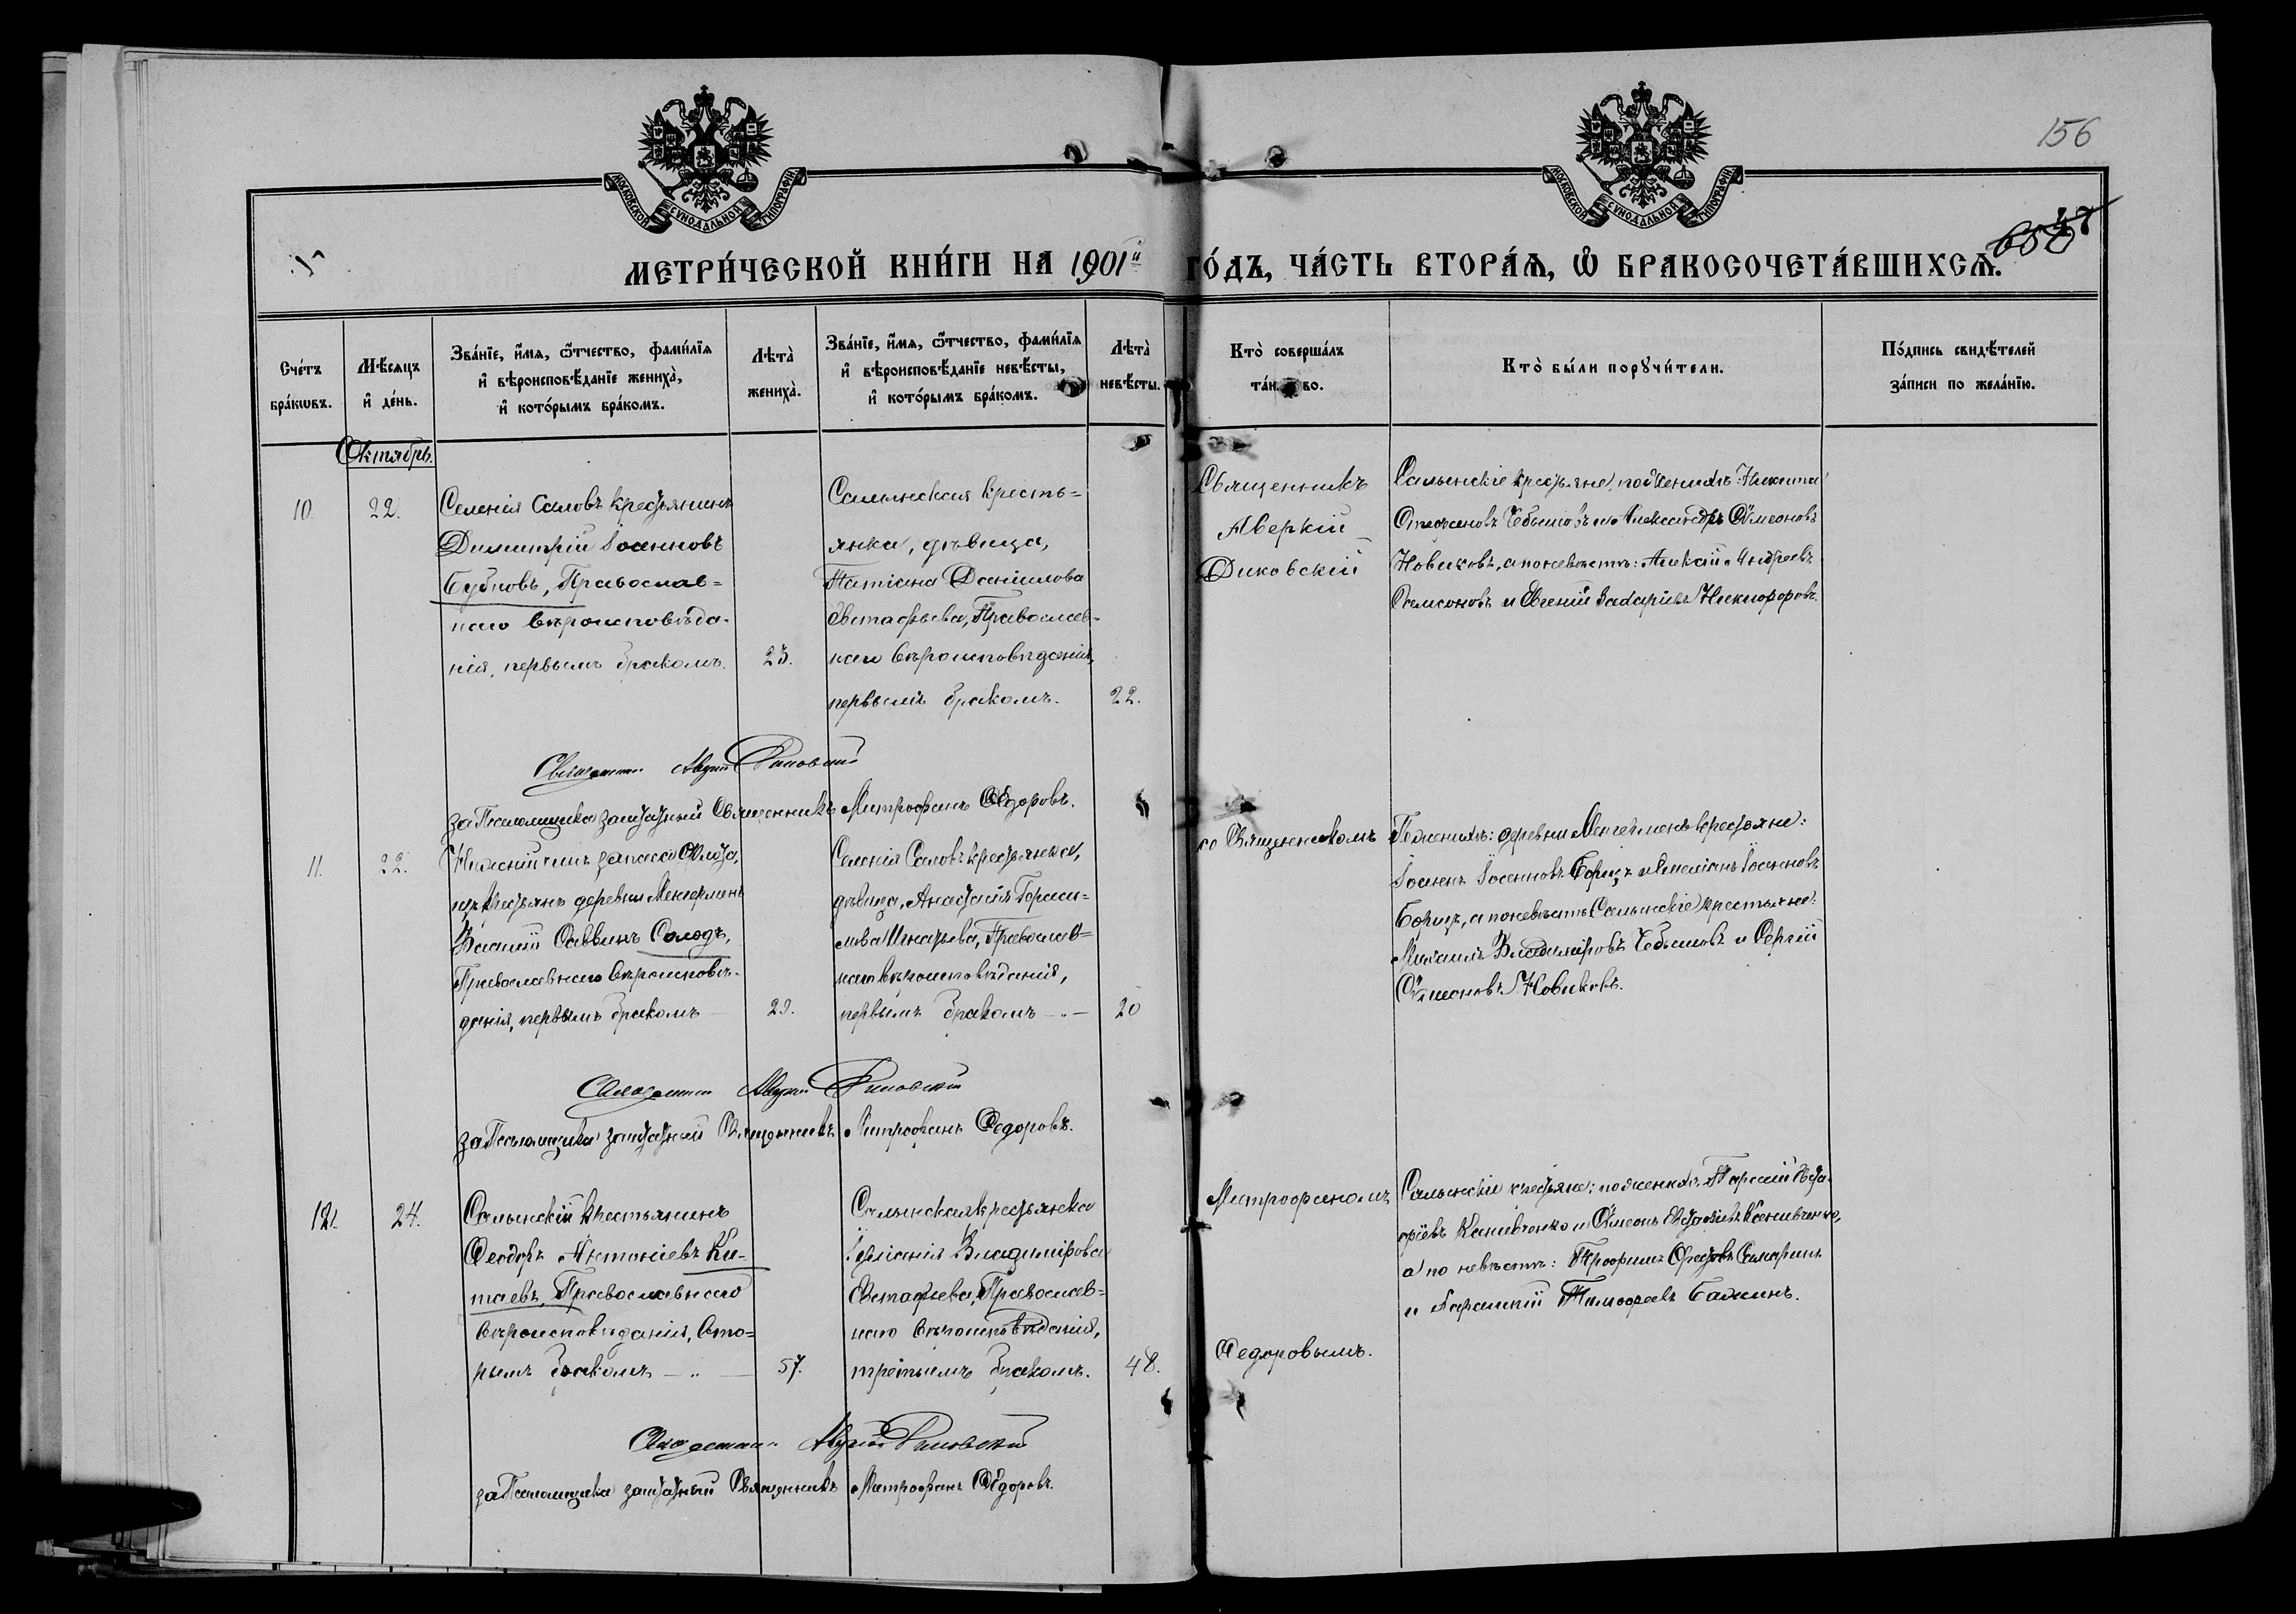 156
МОСКОВСКОЙ СУНОДАЛЬНОЙ ТИПОГРАФІИ
МОСКОВСКОЙ СУНОДАЛЬНОЙ ТИПОГРАФІИ
МЕТРИ́ЧЕСКОЙ КНИ́ГИ НА 1901й ГО́ДЪ, ЧА́СТЬ ВТОРА́Я, Ѡ БРАКОСОЧЕТА́ВШИХСЯ.
Сче́тъ бра́кѡвъ.
Мѣ́сяцъ и҆ де́нь.
Зва́нїе, и҆́мя, ѻ҆́тчество, фами́лїя
и҆ вѣроисповѣ́данїе жениха̀,
и҆ кото́рымъ бра́комъ.
Лѣта̀ жениха̀.
Зва́нїе, и҆́мя, ѻ҆́тчество, фами́лїя
и҆ вѣроисповѣ́данїе невѣ́сты,
и҆ кото́рымъ бра́комъ.
Лѣта̀ невѣ́сты.
Кто̀ соверша́лъ
та́и во.
Кто̀ бы́ли порꙋчи́тели.
По́дпись свидѣ́телей
за́писи по жела́нїю.
Октябрь.
10.
22.
Селенія Саловъ крестьянинъ
Димитрій Іоанновъ
Бубновъ, Православ=
наго вѣроисповѣда-
нія, первымъ бракомъ.
23.
Салынская кресть=
янка, дѣвица,
Татіана Даніилова
Евстафьева, Православ=
наго вѣроисповѣданія,
первымъ бракомъ.
22.
Священникъ
Аверкій
Диковскій
Салынскіе крестьяне, по женихѣ: Никита
Стефановъ Чебышовъ и Александръ Симеоновъ
Новиковъ, а по невѣстѣ: Алексій Андреевъ
Самсоновъ и Евгеній Захаріевъ Никифоровъ.
Священникъ Аверкій Диковскій
за Псаломщика заштатный Священникъ Митрофанъ Ѳедоровъ.
11.
22.
Нижній чинъ запаса Флота,
изъ крестьянъ деревни
Василій Саввинъ Солодъ,
Православнаго вѣроисповѣ-
данія, первымъ бракомъ —
23.
Селенія Саловъ крестьянка,
дѣвица, Анастасія Гераси=
мова Игнатьева, Православ=
наго вѣроисповѣданія,
первымъ бракомъ —„—
20
со Священникомъ
По женихѣ: деревни крестьяне:
Іоаннъ Іоанновъ Борщъ и Емеліанъ Іоанновъ
Борщъ, а по невѣстѣ Салынскіе крестьяне:
Михаилъ Владиміровъ Чебышовъ и Сергій
Симеоновъ Новиковъ.
Священникъ Аверкій Диковскій
за Псаломщика заштатный Священникъ Митрофанъ Ѳедоровъ.
12.
24.
Салынскій крестьянинъ
Ѳеодоръ Антоніевъ Ки-
таевъ, Православнаго
вѣроисповѣданія, вто=
рымъ бракомъ —„—
57.
Салынская крестьянка
Іуліанія Владимірова
Евстафьева, Православ=
наго вѣроисповѣданія,
третьимъ бракомъ.
48.
Митрофаномъ
Ѳедоровымъ.
Салынскіе крестьяне; по женихѣ:
и Симеонъ
а по невѣстѣ: Трофимъ Самаринъ
и Тимофеевъ Бажинъ.
Священникъ Аверкій Диковскій
за Псаломщика заштатный Священникъ Митрофанъ Ѳедоровъ.